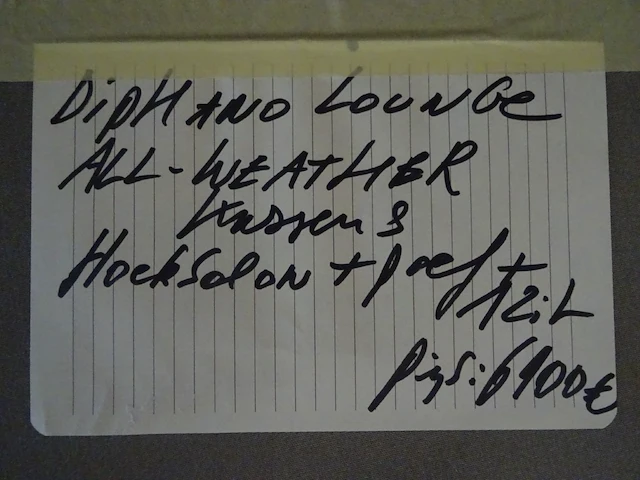 DipHANO LOUNGE
ALL-WEATHER
Kussens
HoekSalon + poef + 
Prijs: 6900€